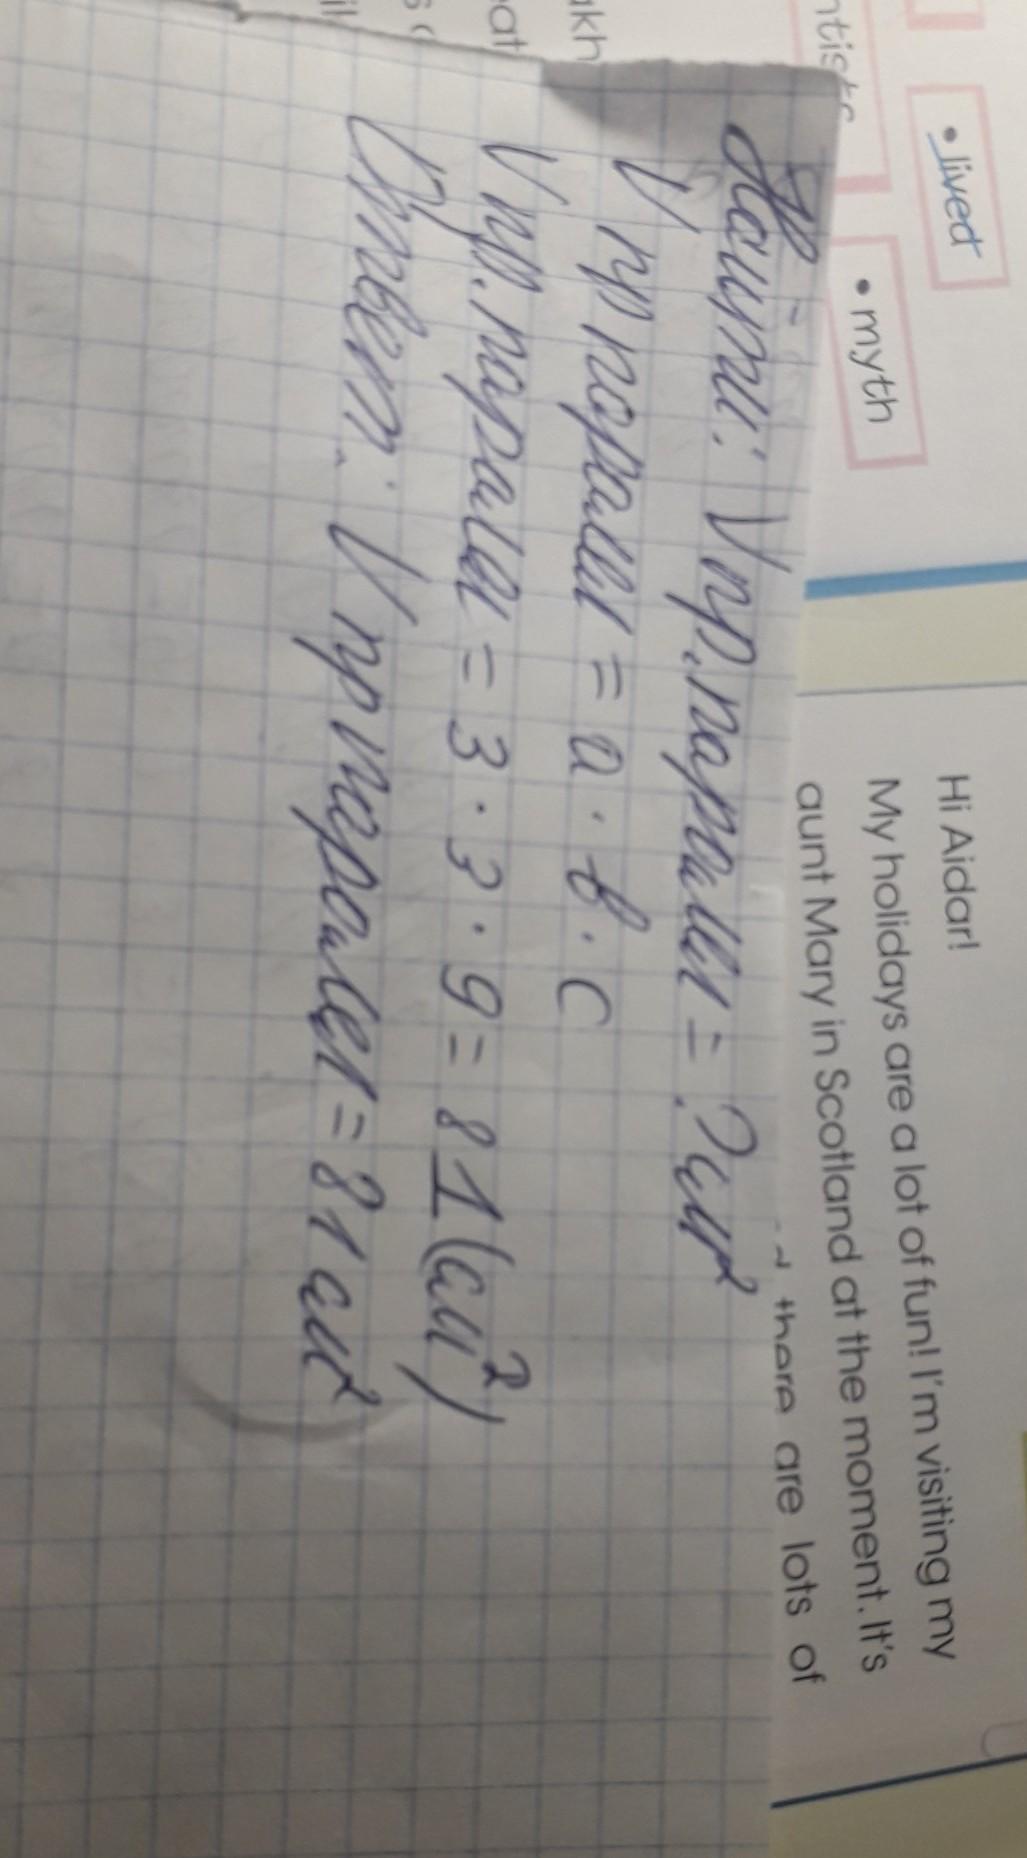 • lived
• myth
Hi Aidar!
My holidays are a lot of fun! I'm visiting my
aunt Mary in Scotland at the moment. It's
there are lots of
Найти: V пр. паралл = ? см²
V пр паралл = а · в · с
V пр. паралл = 3 · 3 · 9 = 81 (см²)
Ответ: V пр паралел = 81 см²